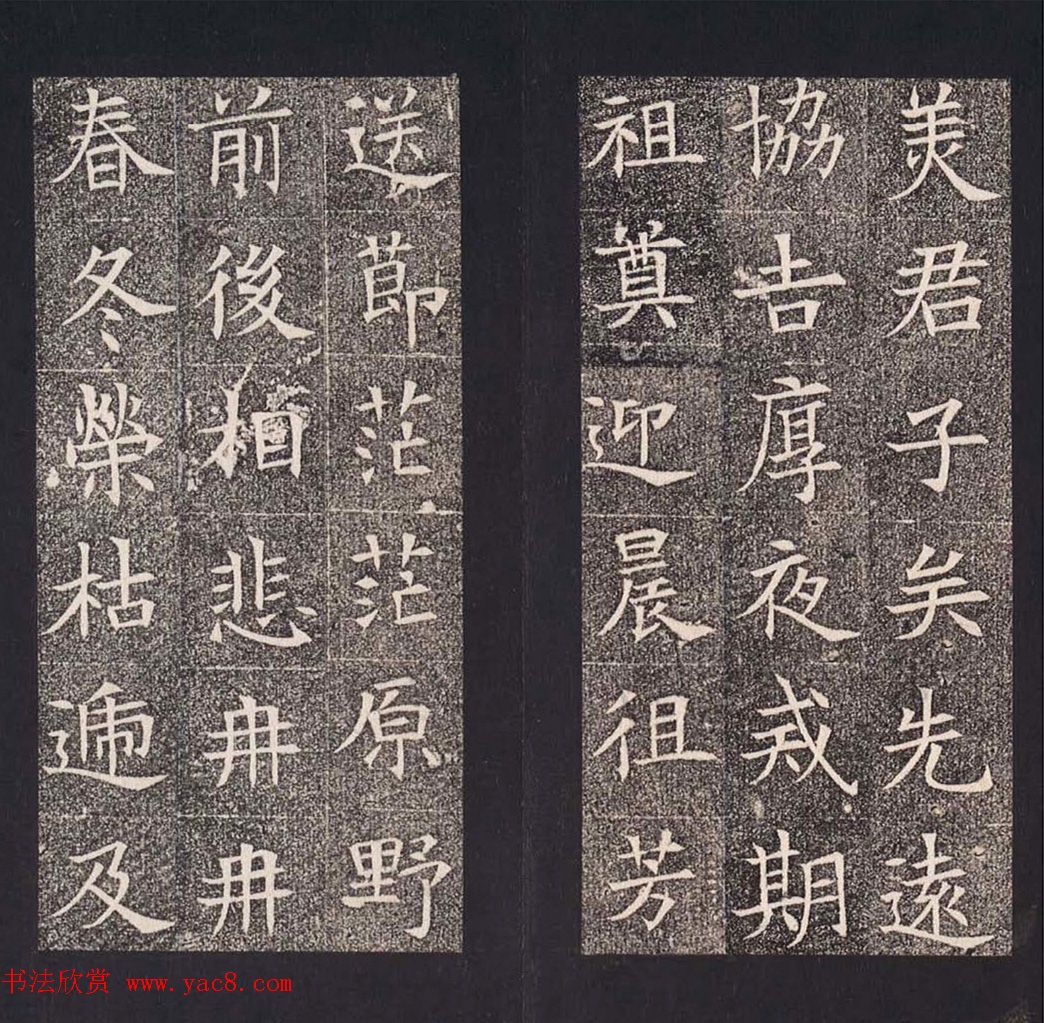 美君子矣先遠
協吉厚夜戒期
祖奠迎晨徂芳
送莭茫茫原野
前後相悲冉冉
春冬榮枯遞及
书法欣赏 www.yac8.com